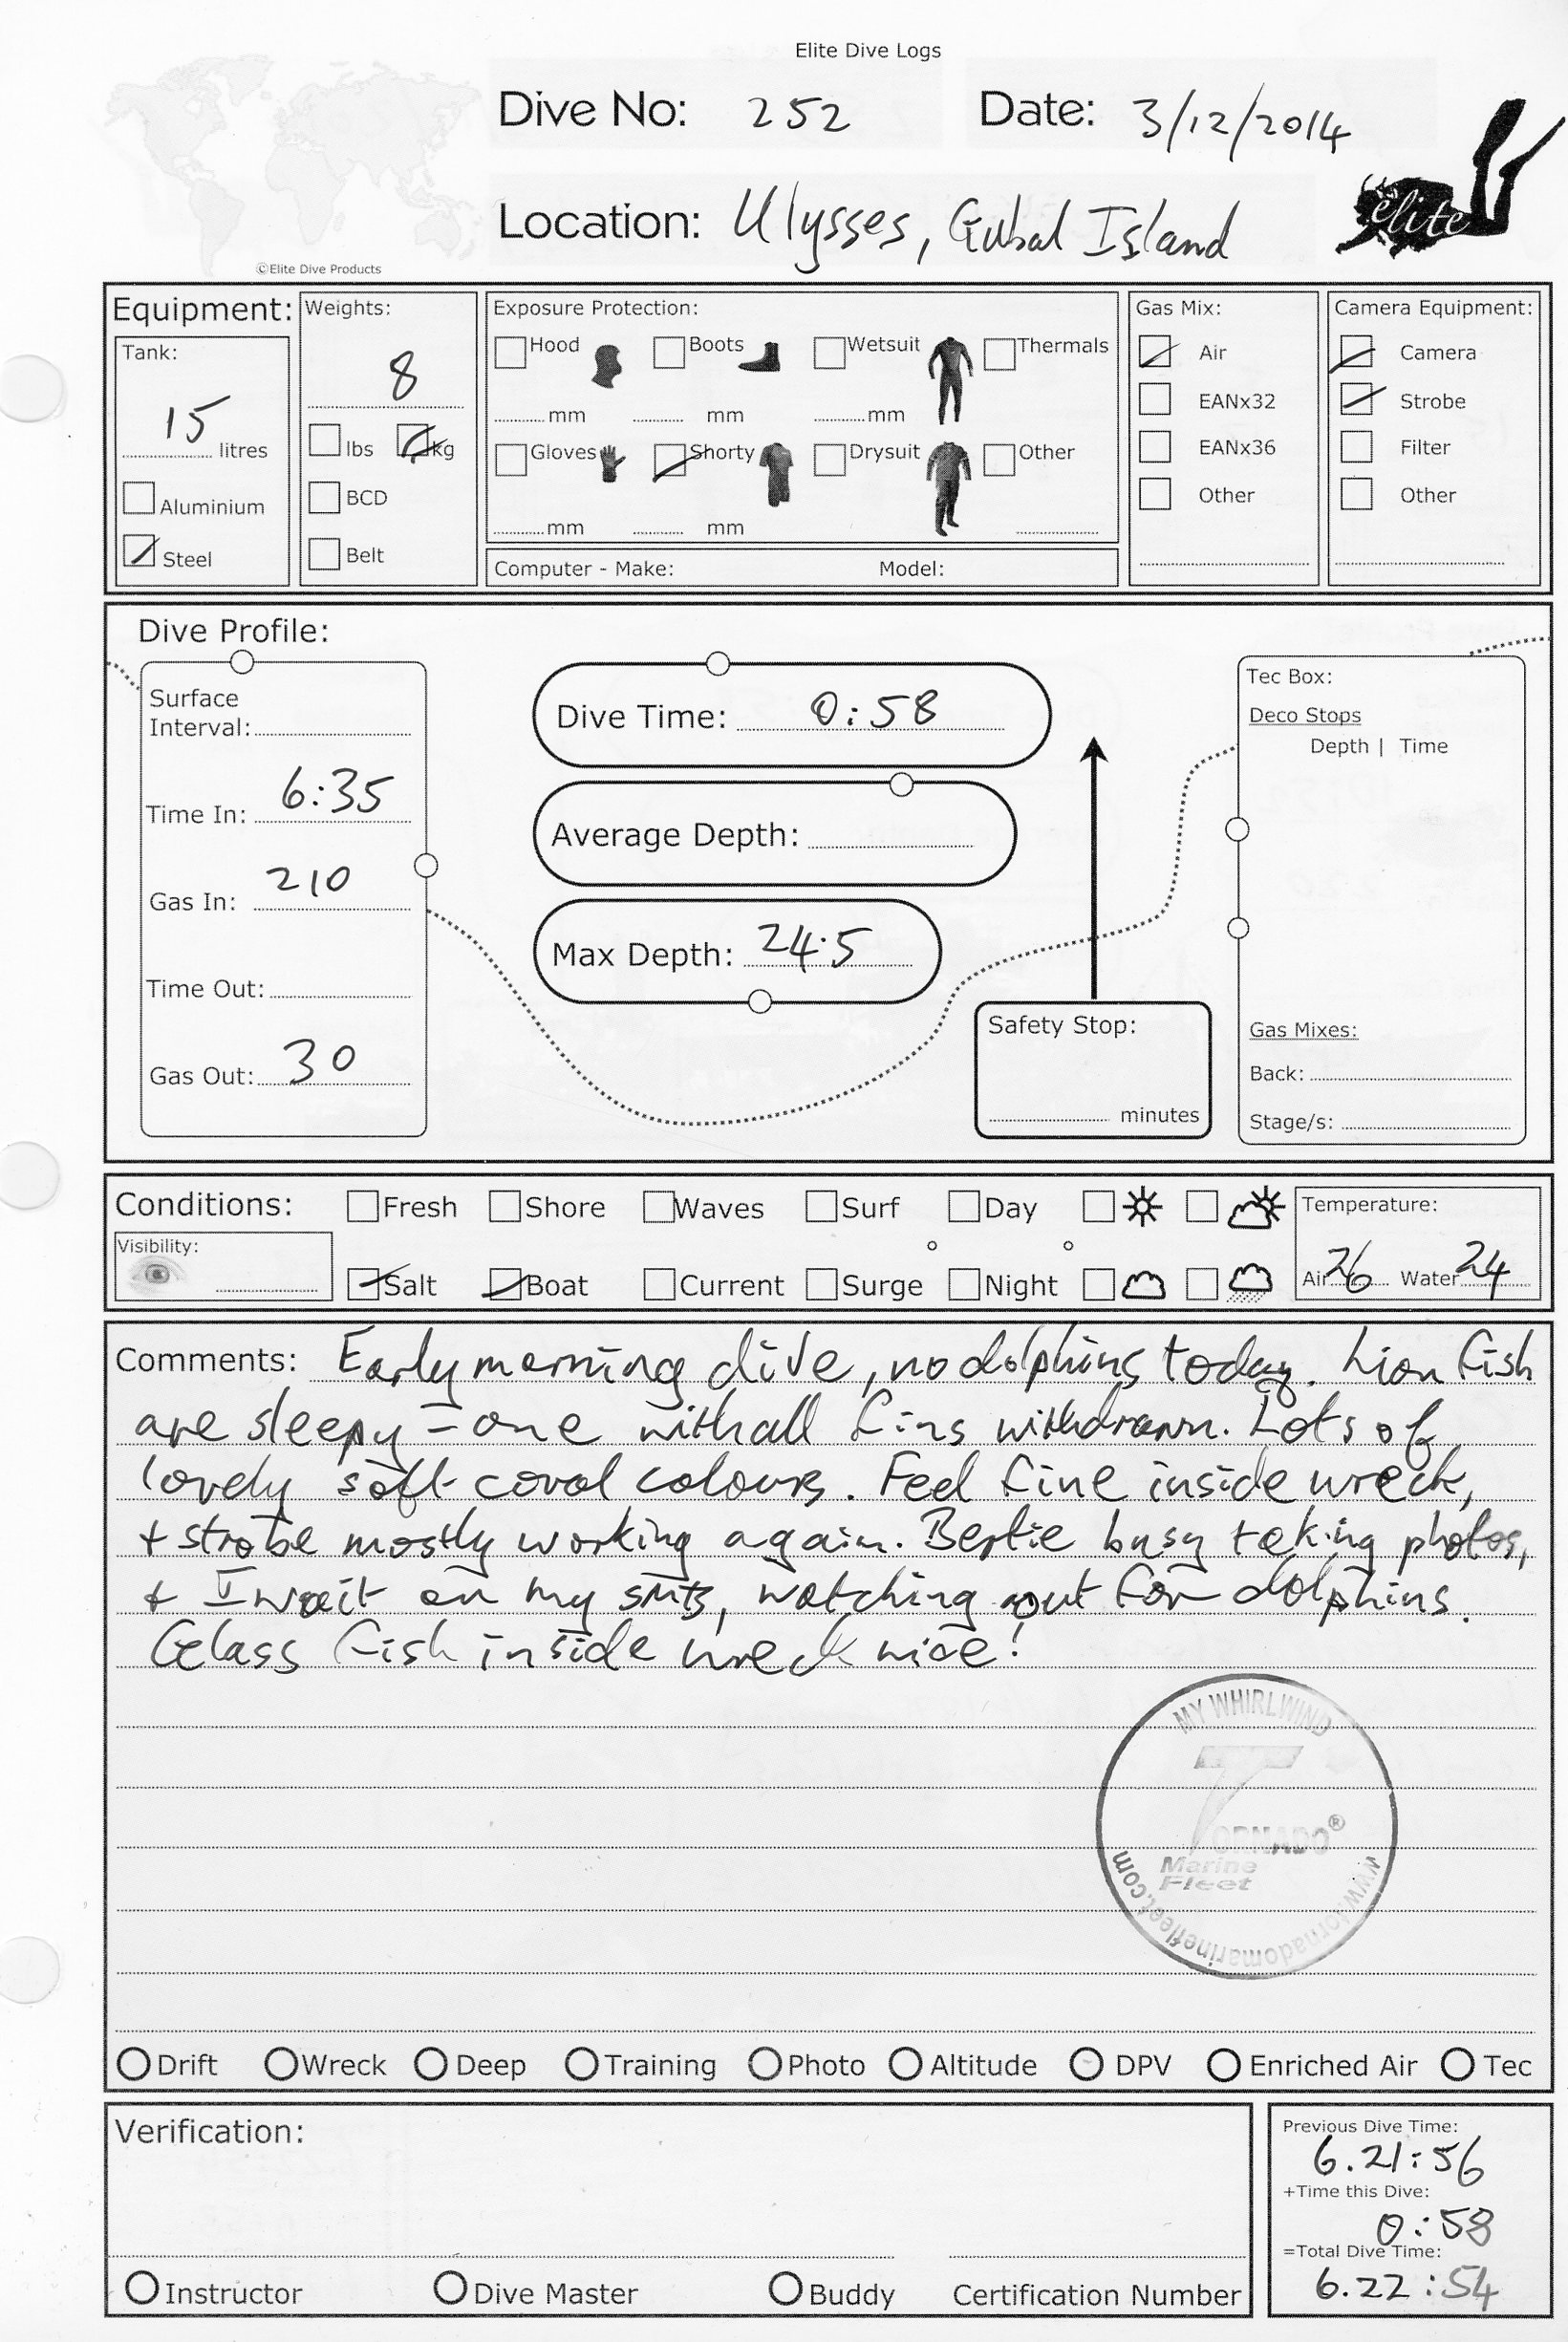 Elite Dive Logs
Dive No: 252 Date: 3/12/2014
Location: Ulysses, Gubal Island
elite
©Elite Dive Products
Equipment: Weights: Exposure Protection: Gas Mix: Camera Equipment:
Tank:
Hood Boots Wetsuit Thermals Air Camera
8
15 litres
mm mm mm EANx32 Strobe
lbs kg Gloves Shorty Drysuit Other EANx36 Filter
Aluminium BCD Other Other
Steel Belt mm mm
Computer - Make: Model:
Dive Profile:
Surface
Interval:
Time In: 6:35
Gas In: 210
Time Out:
Gas Out: 30
Dive Time: 0:58
Average Depth:
Max Depth: 24.5
Safety Stop:
minutes
Tec Box:
Deco Stops
Depth | Time
Gas Mixes:
Back:
Stage/s:
Conditions: Fresh Shore Waves Surf Day Temperature:
Visibility:
Salt Boat Current Surge Night Air 26 Water 24
Comments: Early morning dive, no dolphins today. Lion fish
are sleepy - one with all fins withdrawn. Lots of
lovely soft coral colours. Feel fine inside wreck,
+ strobe mostly working again. Bertie busy taking photos,
+ I wait on my, watching out for dolphins.
Glass fish inside wreck nice!
MY WHIRLWIND
TORNADO®
Marine
Fleet
www.tornadomarinefleet.com
Drift Wreck Deep Training Photo Altitude DPV Enriched Air Tec
Verification:
Instructor Dive Master Buddy Certification Number
Previous Dive Time:
6.21:56
+Time this Dive:
0:58
=Total Dive Time:
6.22:54